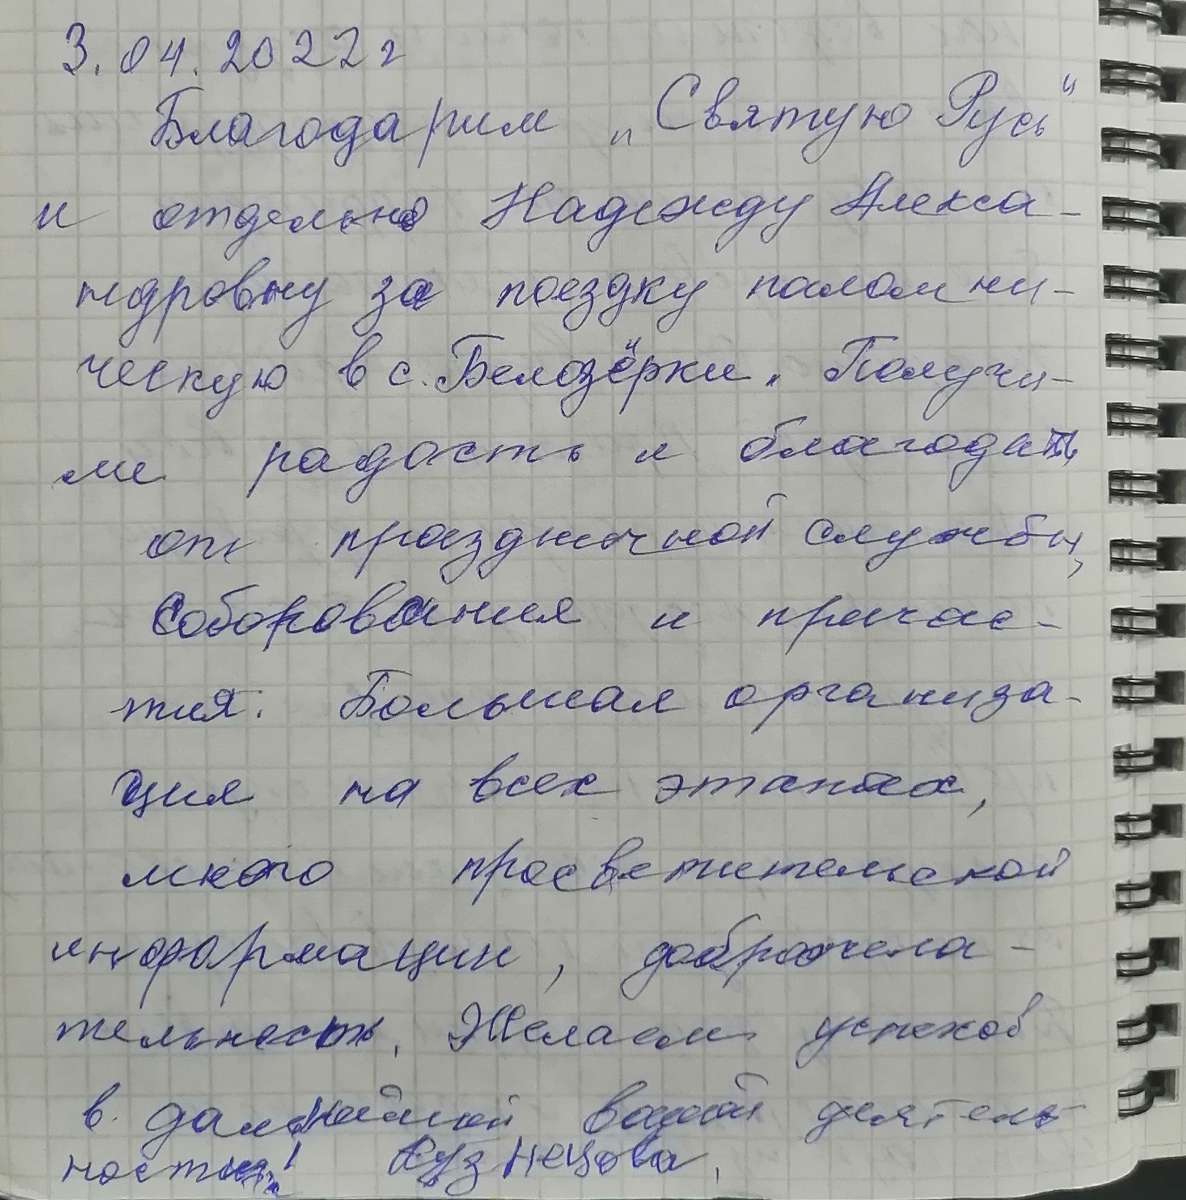 3.04.2022 г
Благодарим „Святую Русь"
и отдельно Надежду Алекса-
ндровну за поездку паломни-
ческую в с. Белозёрки. Получи-
ли радость и благодать
от праздничной службы,
соборования и причас-
тия. Большая организа-
ция на всех этапах,
много просветительской
информации, доброжела-
тельность. Желаем успехов
в дальнейшей вашей деятель
ности! Кузнецова.